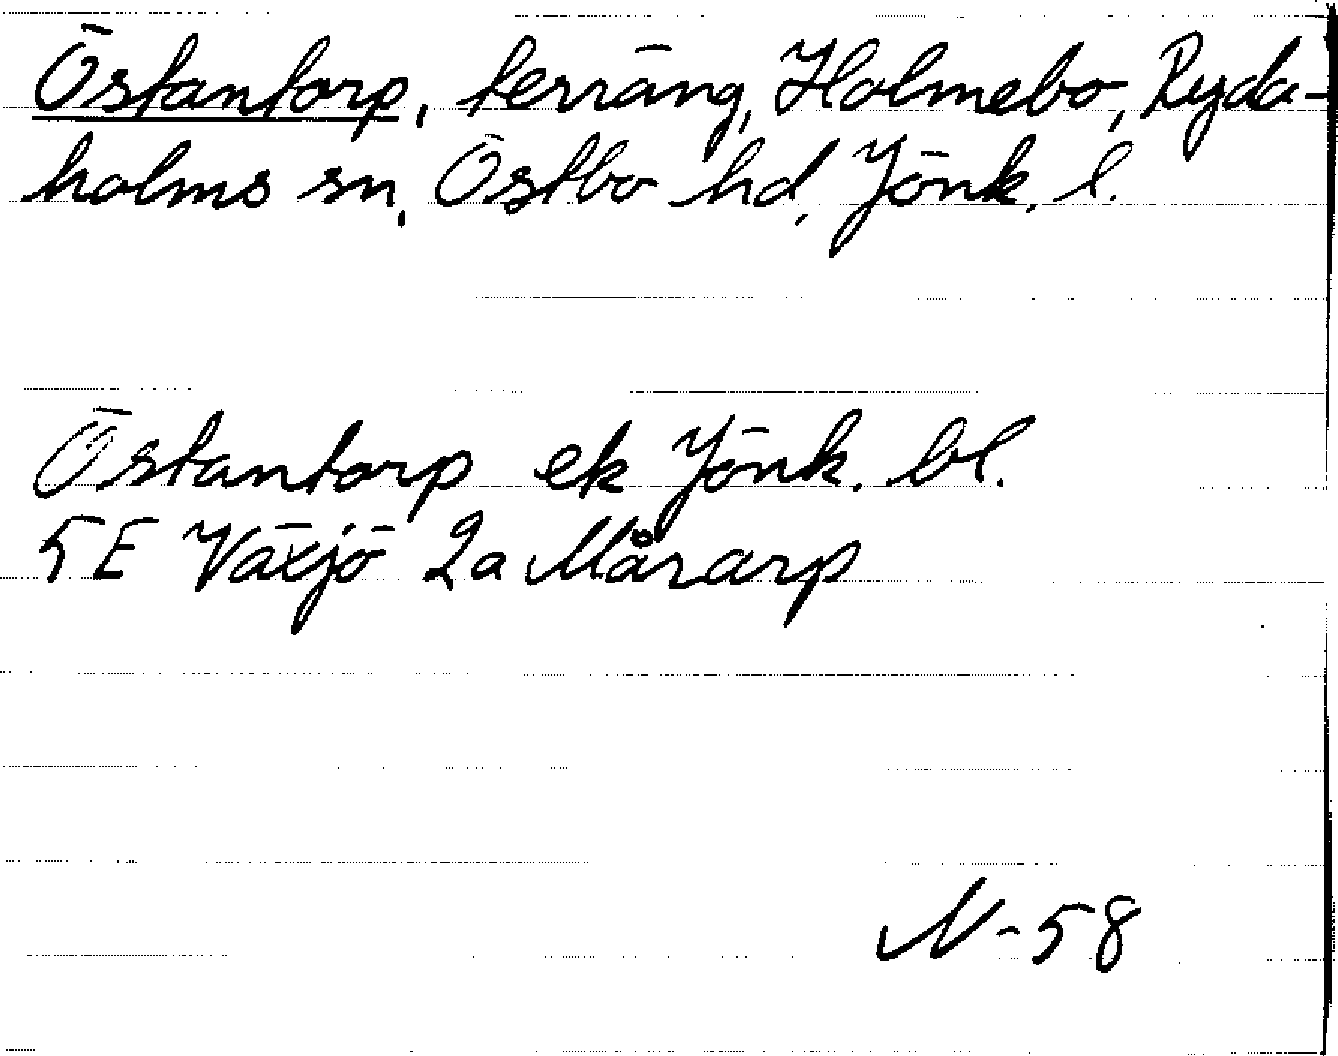 Östantorp, terräng, Holmebo, Ryda-
holms sn, Östbo hd, Jönk. l.
Östantorp ek Jönk. bl.
5E Växjö 2a Mårarp
N-58